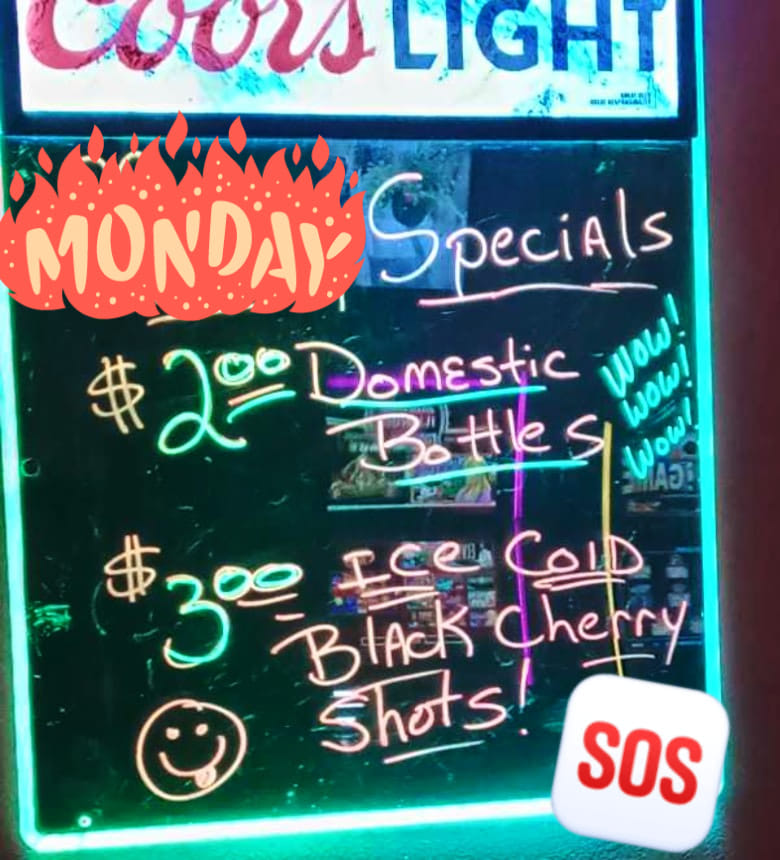 Coors LIGHT
MONDAY Specials
$2.00 Domestic
Bottles
WOW!
WOW!
WOW!
$3.00 Ice Cold
Black Cherry
Shots!
SOS